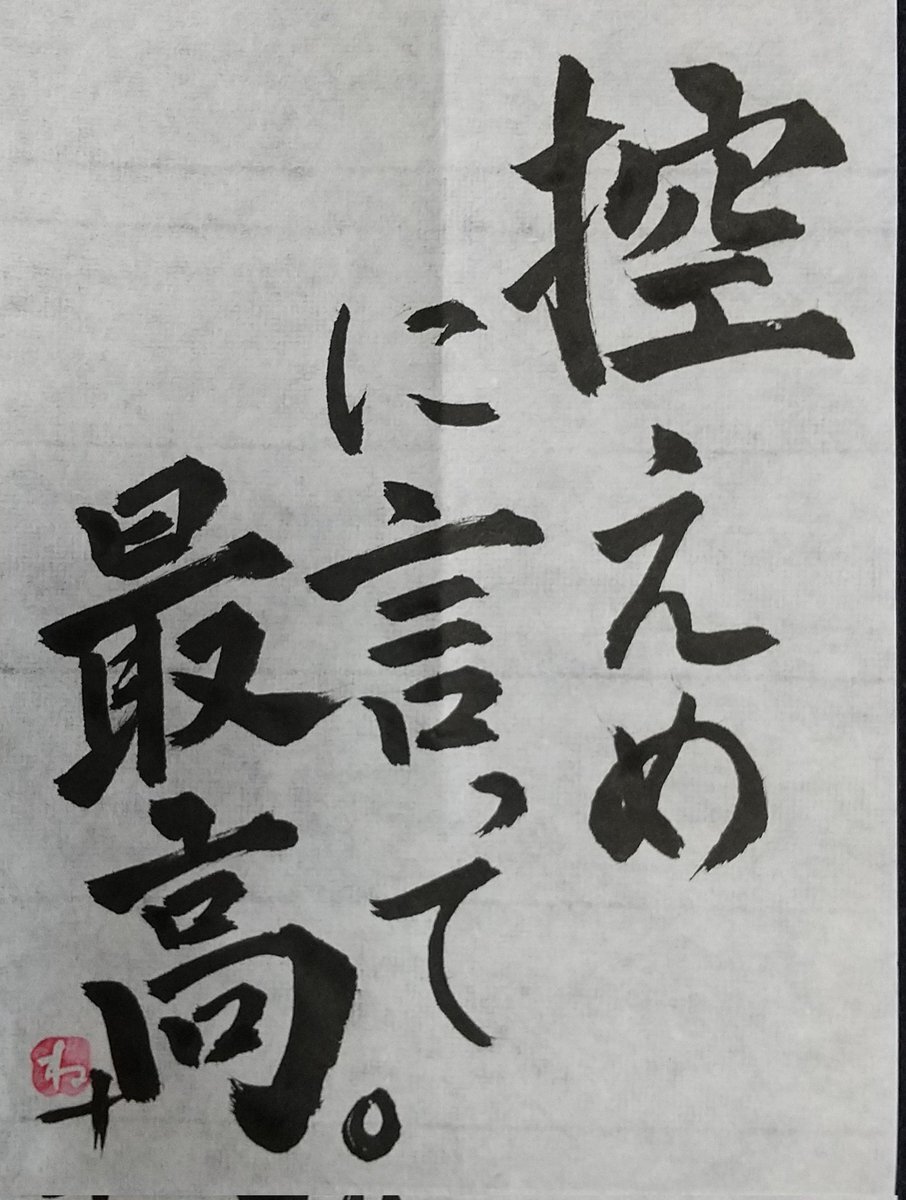 控えめ
に言って
最高。